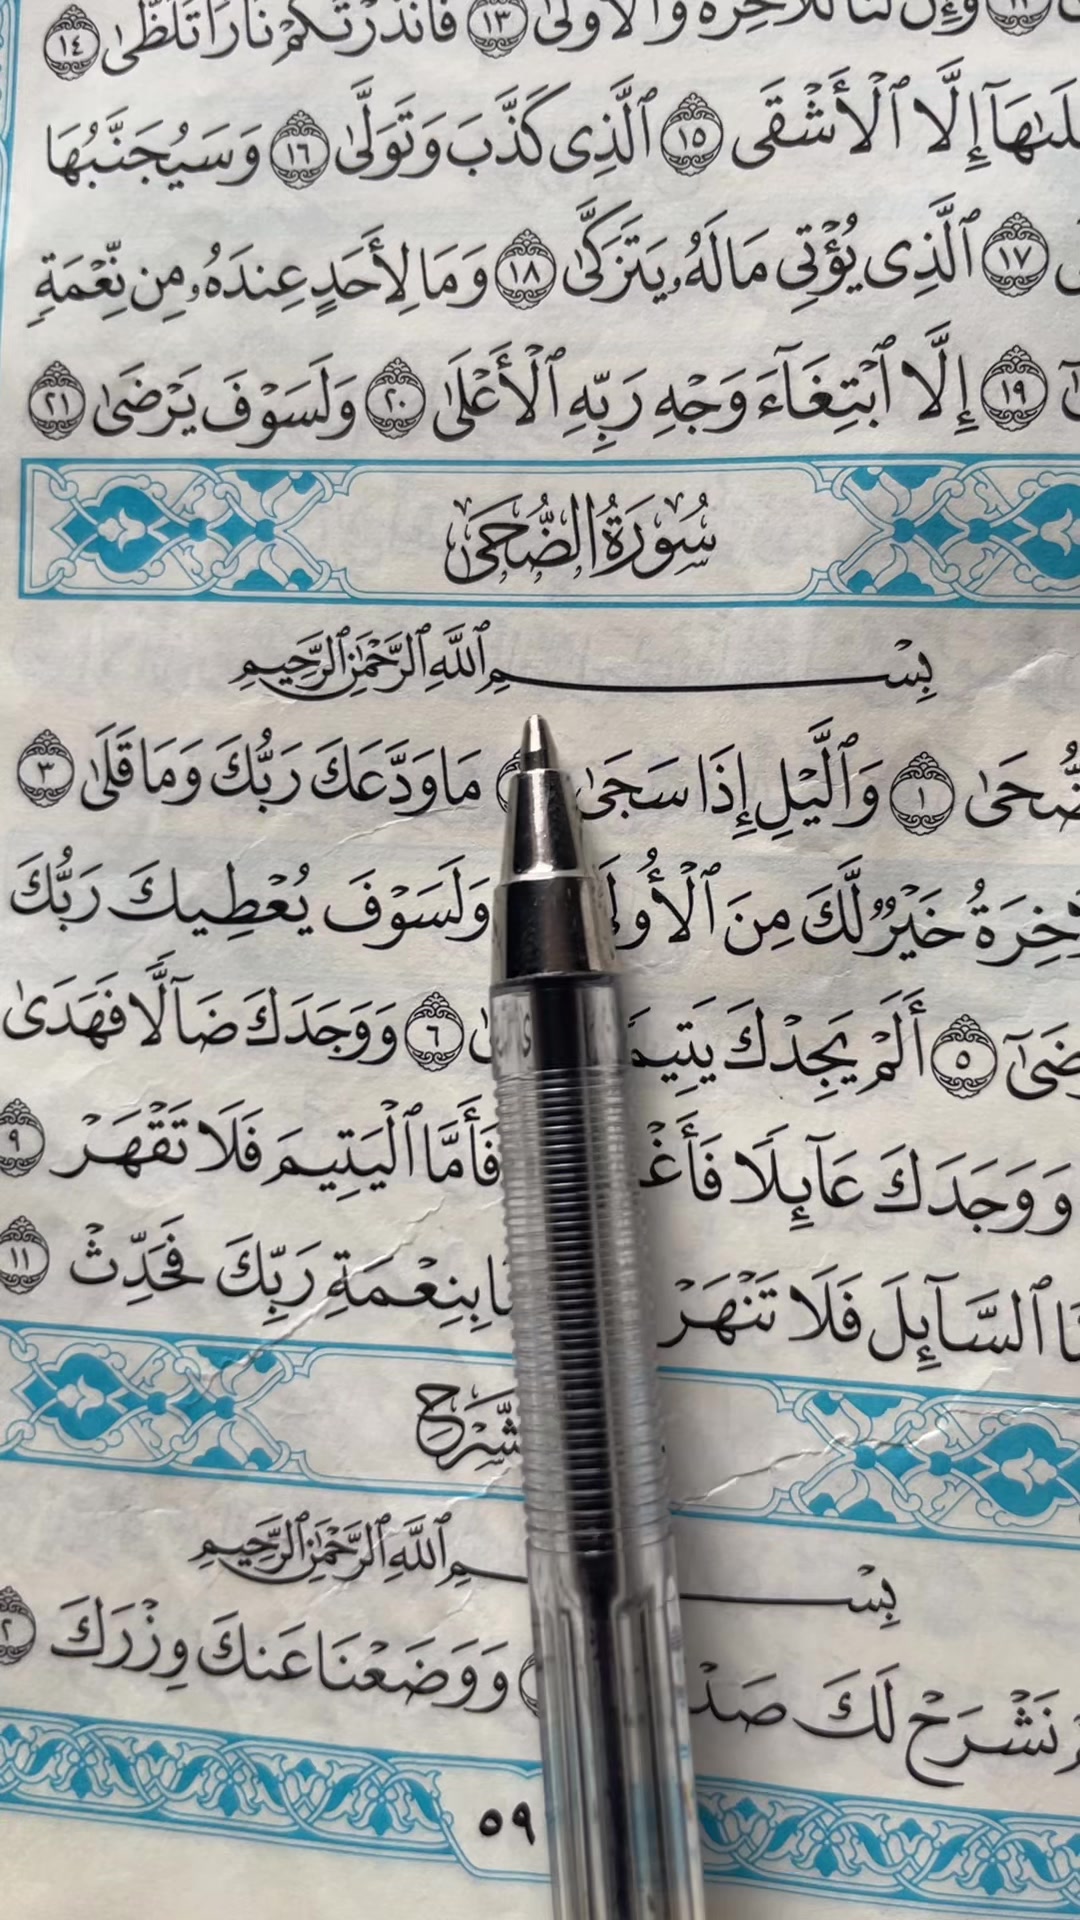 وَإِنَّ لَنَا لَلْآخِرَةَ وَٱلْأُولَىٰ ١٣ فَأَنذَرْتُكُمْ نَارًا تَلَظَّىٰ ١٤
إِلَّا ٱلْأَشْقَى ١٥ ٱلَّذِى كَذَّبَ وَتَوَلَّىٰ ١٦ وَسَيُجَنَّبُهَا
١٧ ٱلَّذِى يُؤْتِى مَالَهُۥ يَتَزَكَّىٰ ١٨ وَمَا لِأَحَدٍ عِندَهُۥ مِن نِّعْمَةٍ
١٩ إِلَّا ٱبْتِغَآءَ وَجْهِ رَبِّهِ ٱلْأَعْلَىٰ ٢٠ وَلَسَوْفَ يَرْضَىٰ ٢١
سُورَةُ الضُّحَىٰ
بِسْمِ ٱللَّهِ ٱلرَّحْمَٰنِ ٱلرَّحِيمِ
١ وَٱلَّيْلِ إِذَا سَجَىٰ مَا وَدَّعَكَ رَبُّكَ وَمَا قَلَىٰ ٣
خَيْرٌ لَّكَ مِنَ وَلَسَوْفَ يُعْطِيكَ رَبُّكَ
٥ أَلَمْ يَجِدْكَ ٦ وَوَجَدَكَ ضَآلًّا فَهَدَىٰ
وَوَجَدَكَ عَآئِلًا فَأَمَّا ٱلْيَتِيمَ فَلَا تَقْهَرْ ٩
ٱلسَّآئِلَ فَلَا تَنْهَرْ بِنِعْمَةِ رَبِّكَ فَحَدِّثْ ١١
بِسْمِ ٱللَّهِ ٱلرَّحْمَٰنِ ٱلرَّحِيمِ
نَشْرَحْ لَكَ وَوَضَعْنَا عَنكَ وِزْرَكَ ٢